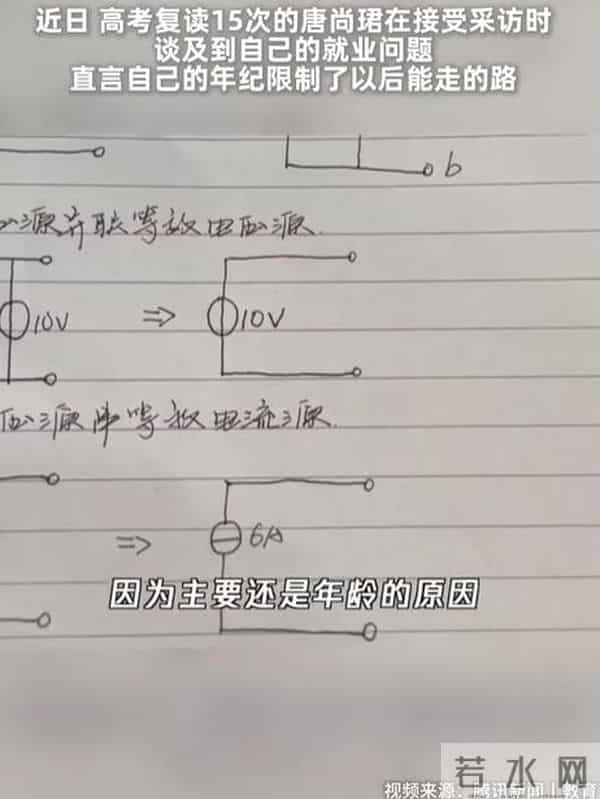 近日 高考复读15次的唐尚珺在接受采访时
谈及到自己的就业问题
直言自己的年纪限制了以后能走的路
b
源并联等效电压源.
10V ⇒ 10V
压源串等效电流源.
⇒ 6A
因为主要还是年龄的原因
若水网
视频来源：腾讯新闻丨教育